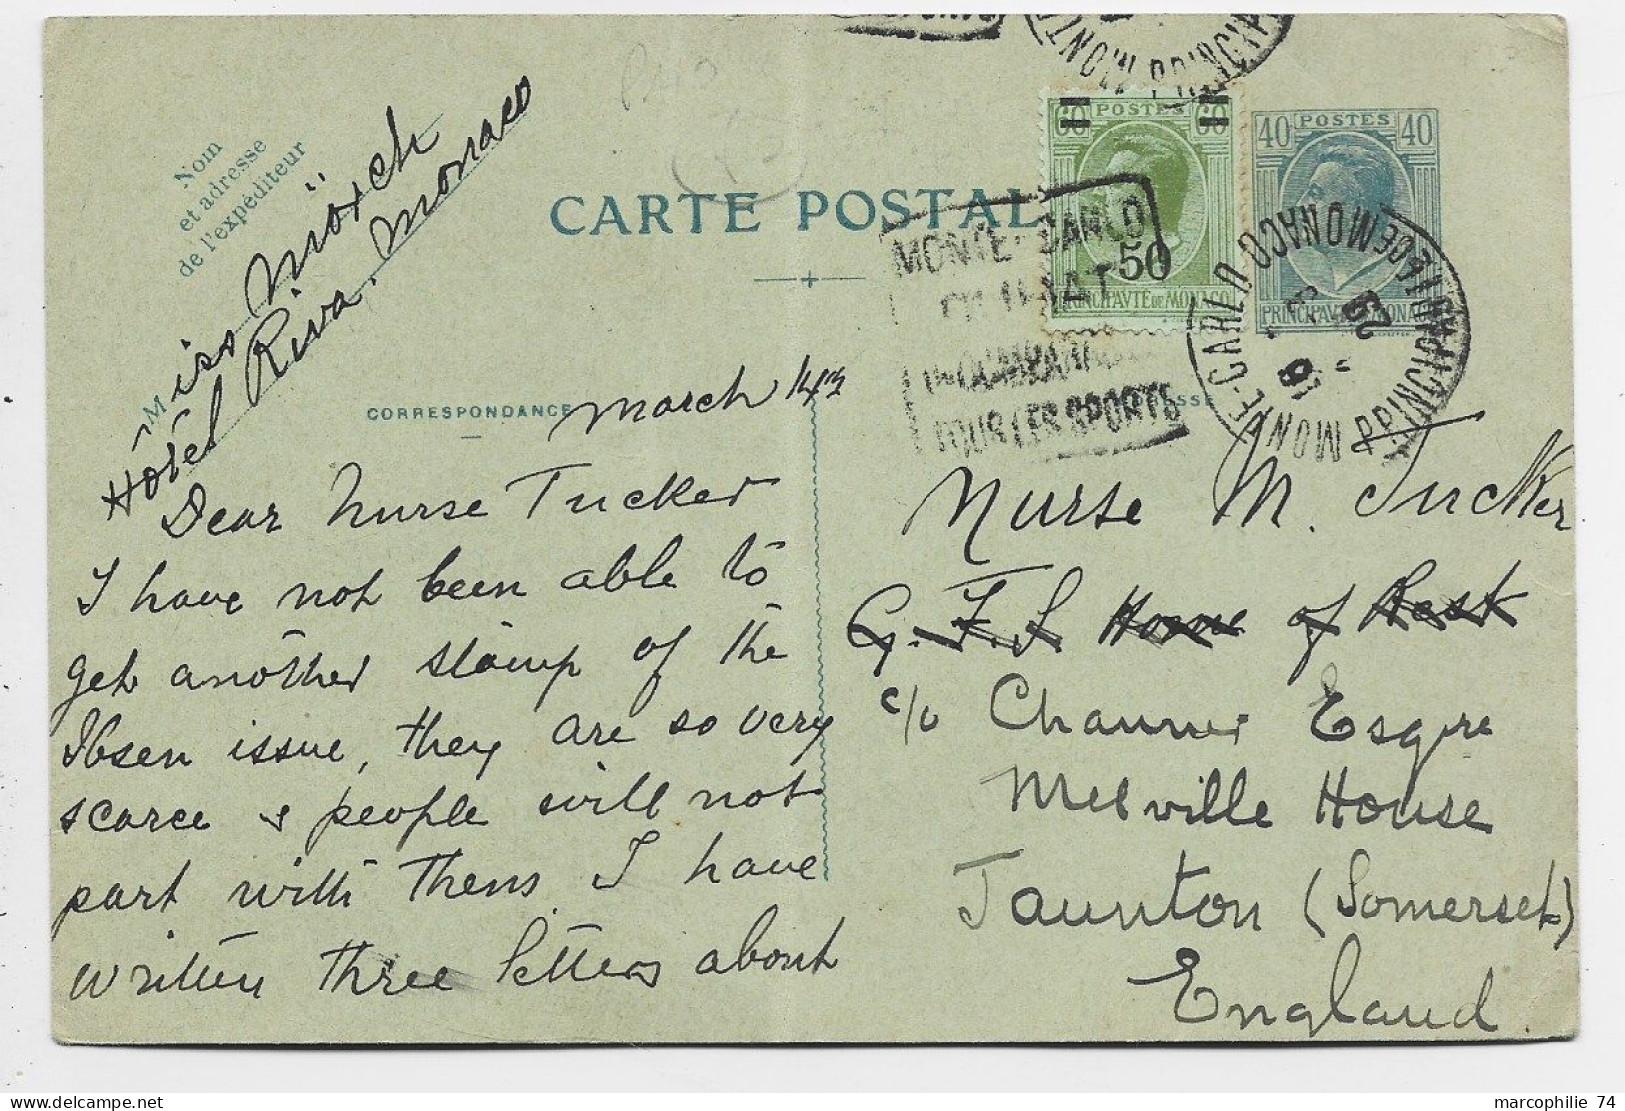 Nom
et adresse
de l'expéditeur
Miss Mörch
Hôtel Riva. Monaco
CARTE POSTALE
CORRESPONDANCE
60 POSTES 60
50
PRINCIPAUTÉ DE MONACO
40 POSTES 40
PRINCIPAUTÉ DE MONACO
MONTE-CARLO
CLIMAT
INCOMPARABLE
TOUS LES SPORTS
MONTE-CARLO PRINCIPAUTÉ DE MONACO
March 14th
Dear Nurse Tucker
I have not been able to
get another stamp of the
Ibsen issue, they are so very
scarce & people will not
part with them. I have
written three letters about
Nurse M. Tucker
G.F.S. Home of Rest
c/o Channer Esqre
Melville House
Taunton (Somerset)
England.
delcampe.net
marcophilie 74